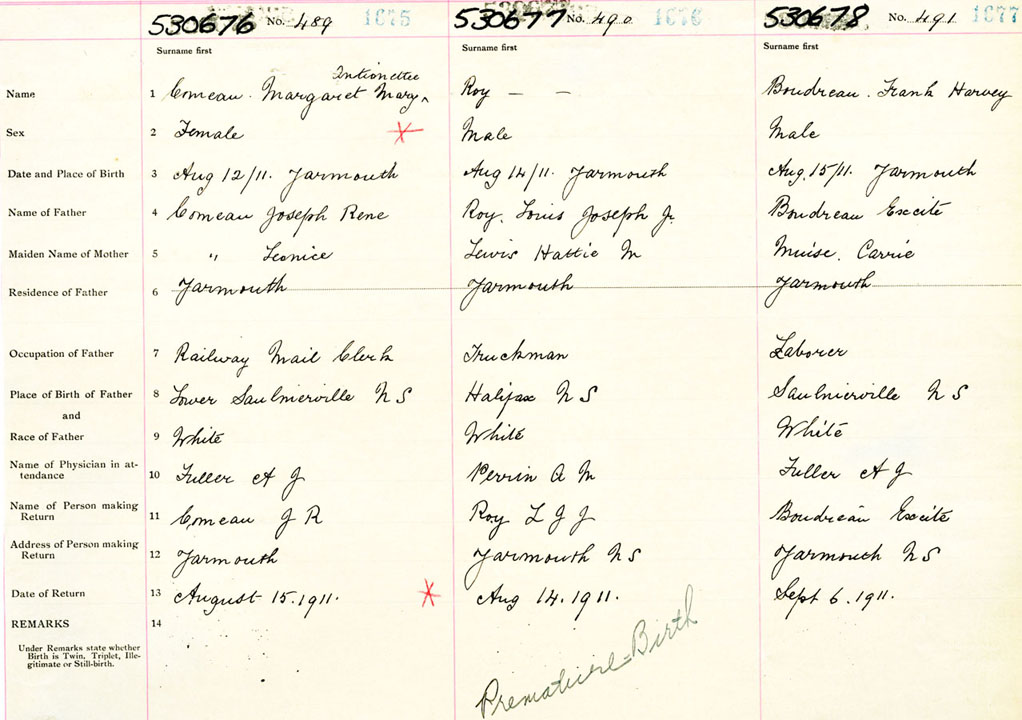 530676 No. 489 1675 530677 No. 490 1676 530678 No. 491 1677
Surname first Surname first Surname first
Antionettee
Name 1 Comeau. Margaret Mary ^ Roy — — Boudreau. Frank Harvey
Sex 2 Female Male Male
Date and Place of Birth 3 Aug 12/11. Yarmouth Aug 14/11. Yarmouth Aug. 15/11. Yarmouth
Name of Father 4 Comeau Joseph Rene Roy. Louis Joseph Jr Boudreau Excite
Maiden Name of Mother 5 " Leonice Lewis Hattie M Muise. Carrie
Residence of Father 6 Yarmouth Yarmouth Yarmouth
Occupation of Father 7 Railway Mail Clerk Truckman Laborer
Place of Birth of Father 8 Lower Saulnierville N S Halifax N S Saulnierville N S
and
Race of Father 9 White White White
Name of Physician in at-
tendance 10 Fuller A J Perrin A M Fuller A J
Name of Person making
Return 11 Comeau J R Roy L J J Boudreau Excite
Address of Person making
Return 12 Yarmouth Yarmouth N S Yarmouth N S
Date of Return 13 August 15. 1911. Aug 14. 1911. Sept 6. 1911.
REMARKS 14
Under Remarks state whether
Birth is Twin, Triplet, Ille-
gitimate or Still-birth.
Premature=Birth